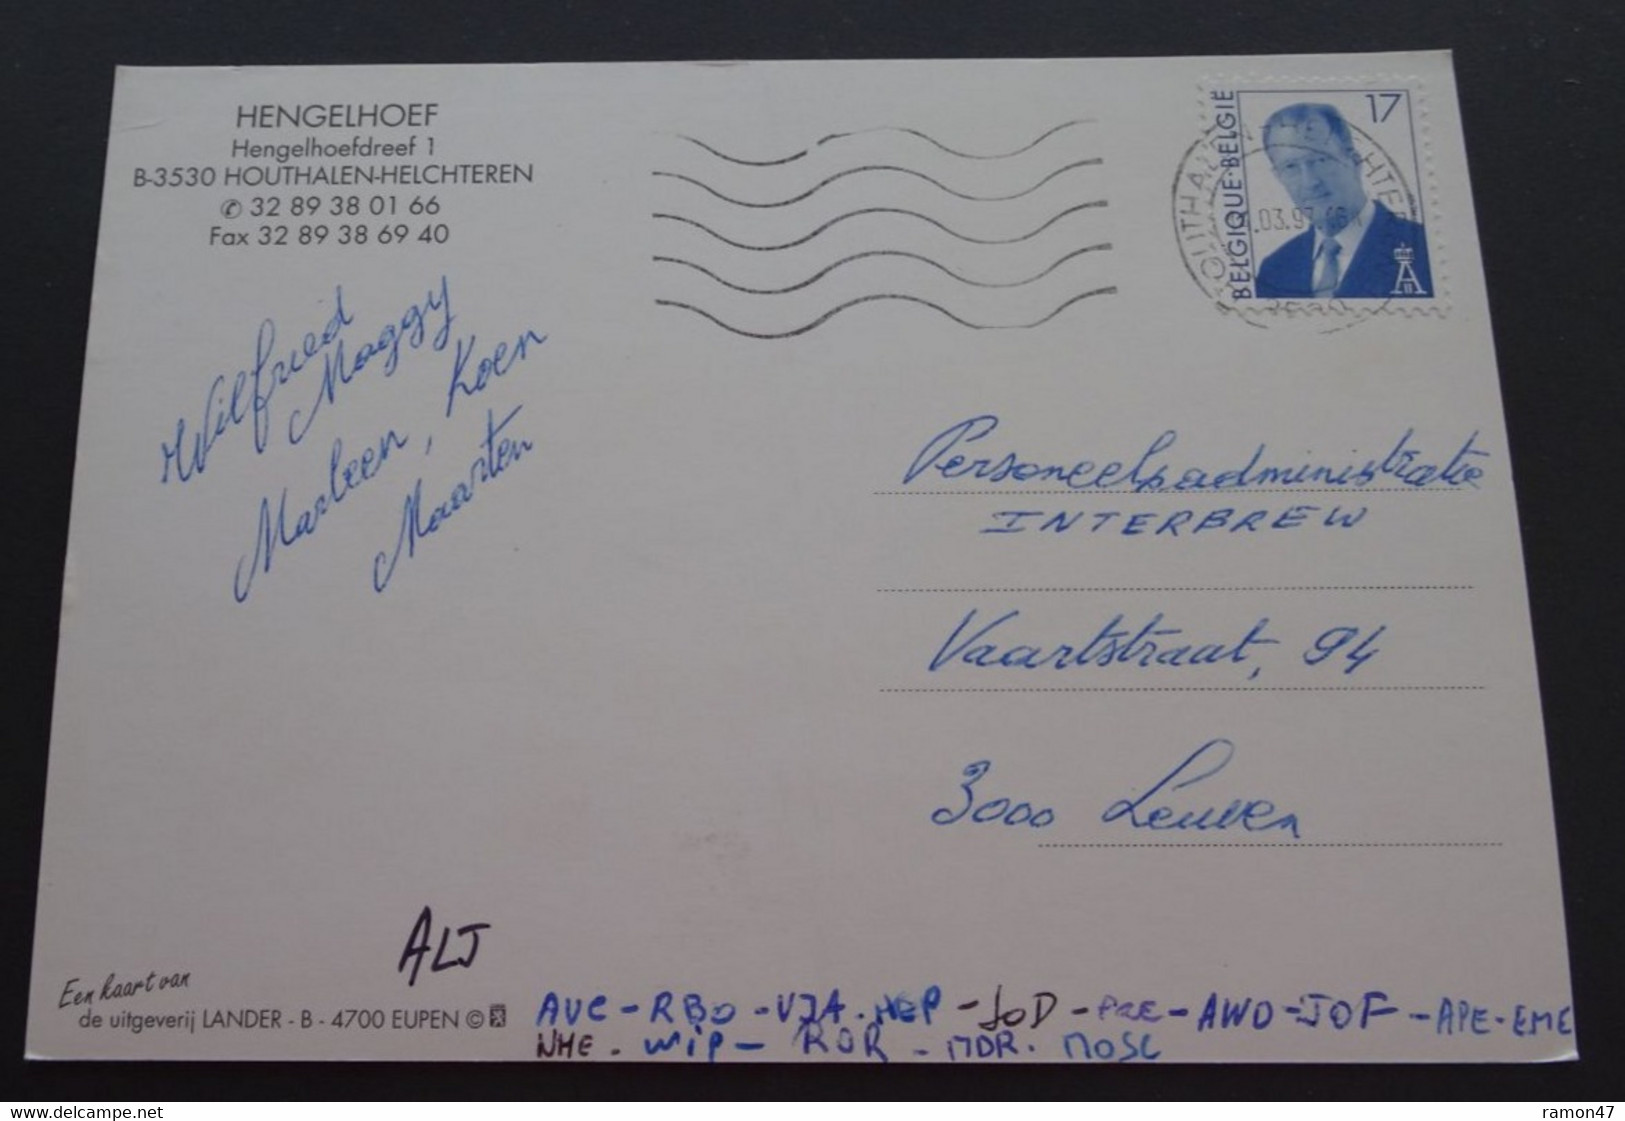 HENGELHOEF
Hengelhoefdreef 1
B-3530 HOUTHALEN-HELCHTEREN
✆ 32 89 38 01 66
Fax 32 89 38 69 40
17
BELGIQUE·BELGIË
.03.97
Wilfried
Maggy
Marleen, Koen
Maarten
Personeelsadministratie
INTERBREW
Vaartstraat, 94
3000 Leuven
ALJ
Een kaart van
de uitgeverij LANDER - B - 4700 EUPEN ©
AVC - RBO - VJA - HEP - JOD - PRE - AWD - JOF - APE - EME
NHE - WIP - ROR - MDR. MOSC
www.delcampe.net
ramon47